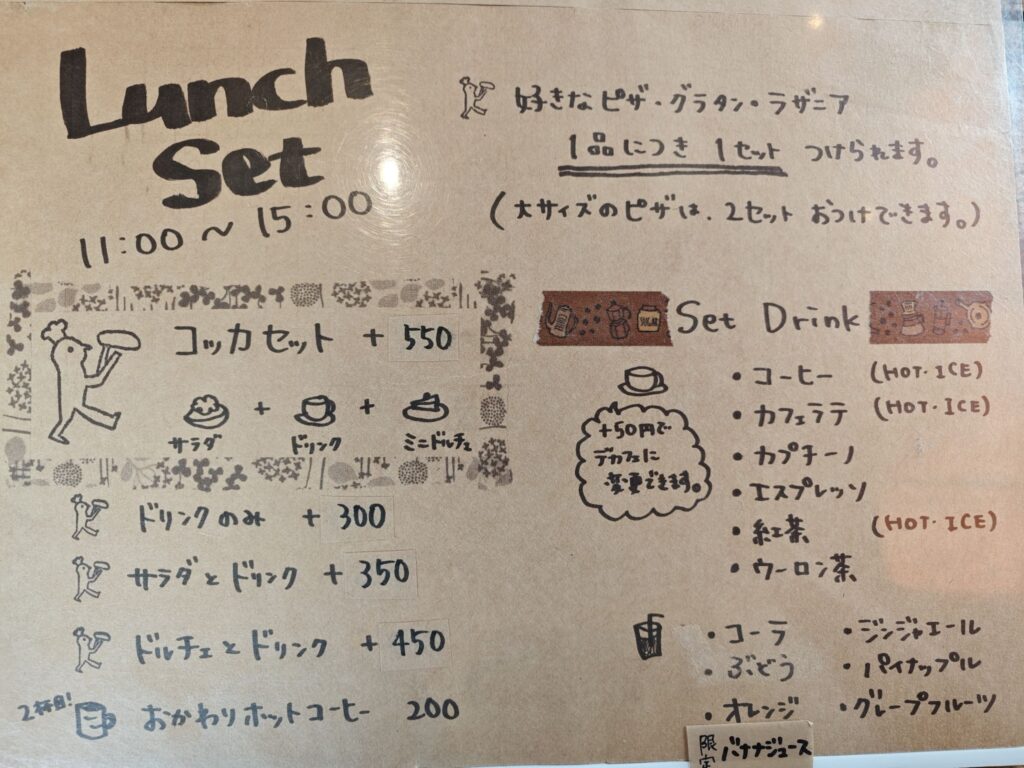 Lunch
Set
11:00 ~ 15:00
好きなピザ・グラタン・ラザニア
1品につき 1セット つけられます。
(大サイズのピザは、2セット おつけできます。)
コッカセット + 550
サラダ + ドリンク + ミニドルチェ
ドリンクのみ + 300
サラダとドリンク + 350
ドルチェとドリンク + 450
2杯目!
おかわりホットコーヒー 200
Set Drink
SUGAR
+50円で
デカフェに
変更できます。
・コーヒー (HOT・ICE)
・カフェラテ (HOT・ICE)
・カプチーノ
・エスプレッソ
・紅茶 (HOT・ICE)
・ウーロン茶
・コーラ ・ジンジャエール
・ぶどう ・パイナップル
・オレンジ ・グレープフルーツ
限定 バナナジュース